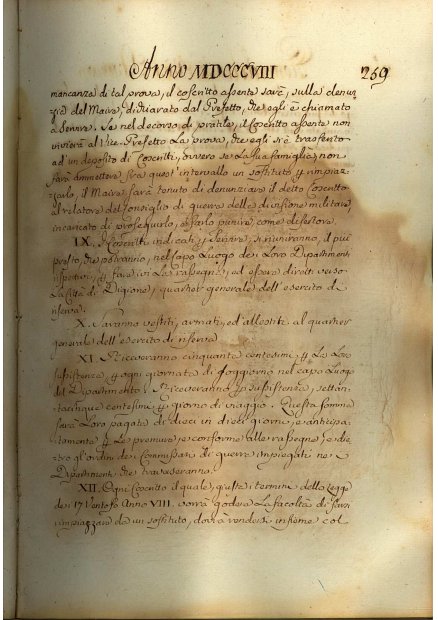 Anno MDCCCVIII 259
mancanza di tal prova, il coscritto assente sarà, sulla denun-
zia del Maire, dichiarato dal Prefetto, che egli è chiamato
a servire. Se nel decorso di pratile, il Coscritto assente non
invierà al Vice-Prefetto la prova, che egli si è trasferito
ad un deposito di Coscritti, ovvero se la sua famiglia, non
farà ammettere, fra quest' intervallo un sostituto per rimpiaz-
zarlo, il Maire sarà tenuto di denunziare il detto Coscritto
al relatore del Consiglio di guerra della divisione militare,
incaricato di proseguirlo, e farlo punire, come disertore.
IX. I Coscritti indicati per servire, si riuniranno, il più
presto, che potranno, nel Capo Luogo dei Loro Dipartimenti
rispettivi, per fare ivi la rassegna, ed essere diretti verso
la Città di Digione, quartier generale dell'esercito di
riserva.
X. Saranno vestiti, armati, ed allestiti al quartier
generale dell'esercito di riserva
XI. Riceveranno cinquante centesimi per la Loro
sussistenza per ogni giornata di soggiorno nel capo Luogo
del Dipartimento. Riceveranno per sussistenza, settan-
tacinque centesimi per giorno di viaggio. Questa somma
sarà Loro pagata di dieci in dieci giorni, e anticipa-
tamente per le premure, e conforme alle rassegne, e die-
tro gl'ordini dei Commissari di guerra impiegati ne
Dipartimenti che traverseranno.
XII. Ogni Coscritto il quale, giusta i termini della Legge
de 17 Ventoso Anno VIII. vorrà godere la facoltà di farsi
rimpiazzare da un sostituto, dovrà rendersi insieme col